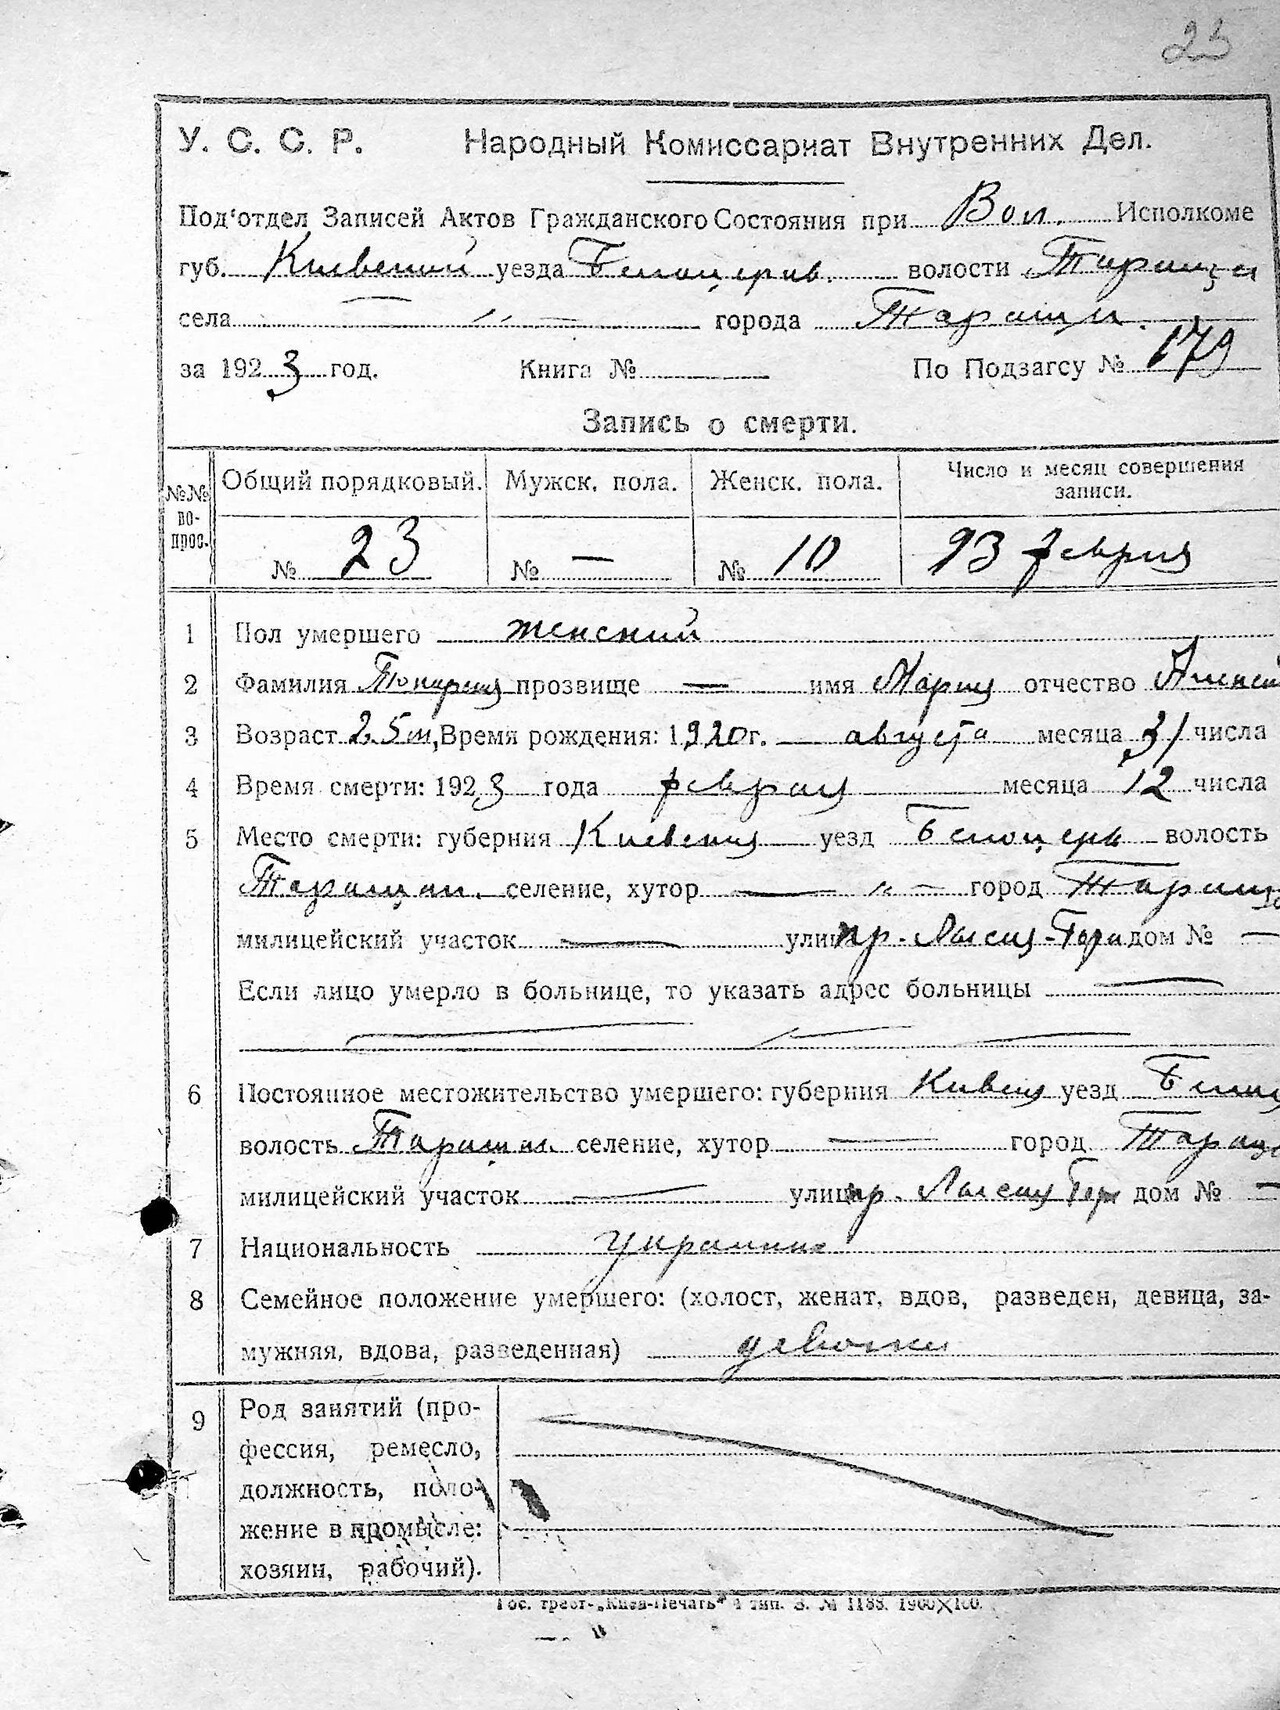 23
У. С. С. Р. Народный Комиссариат Внутренних Дел.
Под'отдел Записей Актов Гражданского Состояния при Вол. Исполкоме
губ. Киевской уезда Белоцерков. волости Таращан
села — „ — города Таращи.
за 1923 год. Книга № — По Подзагсу № 179
Запись о смерти.
№№ вопрос. Общий порядковый. Мужск. пола. Женск. пола. Число и месяц совершения записи.
№ 23 № — № 10 23 февраля
1 Пол умершего женский
2 Фамилия прозвище — имя Мария отчество Алексе
3 Возраст 2. 5 м, Время рождения: 1920 г. — августа месяца 31 числа
4 Время смерти: 1923 года февраля месяца 12 числа
5 Место смерти: губерния Киевская уезд Белоцерк волость
Таращан. селение, хутор — „ — город Тараща
милицейский участок — улица пр. Лысая-Гора дом № —
Если лицо умерло в больнице, то указать адрес больницы —
6 Постоянное местожительство умершего: губерния Киевск уезд Белоц
волость Таращан. селение, хутор — город Тараща
милицейский участок — улица пр. Лысая Гора дом № —
7 Национальность украинка
8 Семейное положение умершего: (холост, женат, вдов, разведен, девица, за-
мужняя, вдова, разведенная) девочка
9 Род занятий (про-
фессия, ремесло,
должность, поло-
жение в промысле:
хозяин, рабочий).
Гос. трест-„Киев-Печать" 4 тип. З. № 1188. 1900×100.